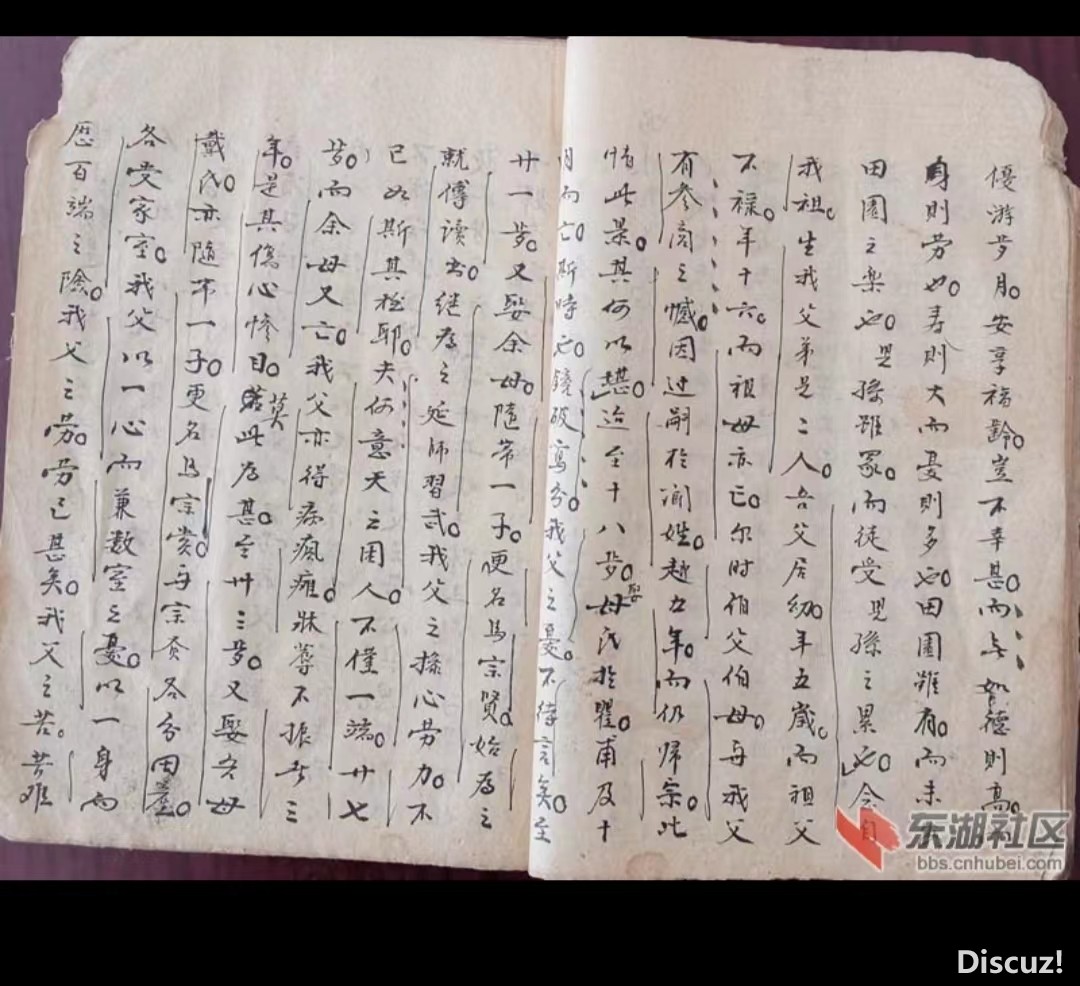 優游歲月安享福齡豈不幸甚而無如德則高而
身則勞也壽則大而憂則多也田園雖有而未
田園之樂也児孫雖眾而徒受児孫之累也念自
我祖生我父弟兄二人吾父居幼年五歲而祖父
不祿年十六而祖母亦亡尔时伯父伯母与我父
有参商之憾因过嗣於姓越九年而仍归宗此
情此景其何以堪迨至十八歲娶母氏於瞿甫及十
月而亡斯時也鏡破鸾分我父之憂不待言矣至
廿一歲又娶余母隨带一子更名馬宗賢始為之
就傅读书继為之延師習武我父之操心劳力不
已如斯其极耶夫何意天之困人不僅一端廿七
歲而余母又亡我父亦得病瘋癱狀蓐不振者三
年是其傷心惨目莫此為甚至卅三歲又娶母
戴氏亦隨带一子更名馬宗賞与宗各分田產
各受家室我父以一心而兼数室之憂以一身而
歷百端之險我父之劳劳已甚矣我父之苦苦难
东湖社区
bbs.cnhubei.com
Discuz!